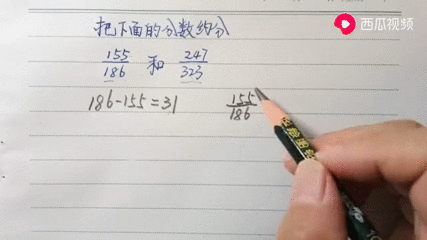 西瓜视频
把下面的分数约分
155/186 和 247/323
186-155=31
155/186